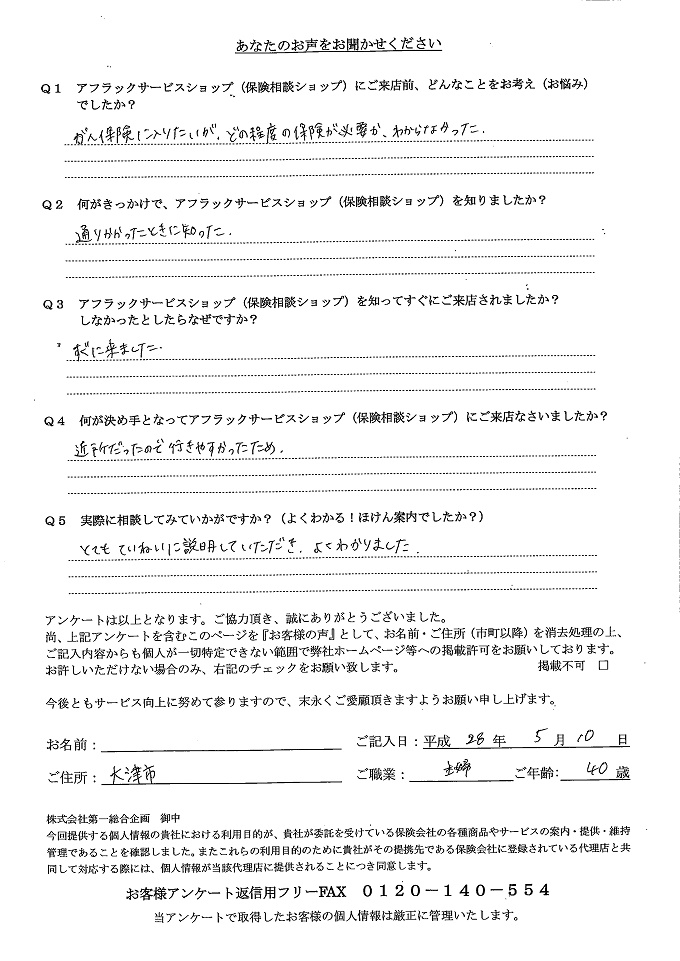 あなたのお声をお聞かせください
Q1 アフラックサービスショップ（保険相談ショップ）にご来店前、どんなことをお考え（お悩み）
でしたか？
がん保険に入りたいが、どの程度の保険が必要か、わからなかった.
Q2 何がきっかけで、アフラックサービスショップ（保険相談ショップ）を知りましたか？
通りかかったときに知った.
Q3 アフラックサービスショップ（保険相談ショップ）を知ってすぐにご来店されましたか？
しなかったとしたらなぜですか？
すぐに来ました.
Q4 何が決め手となってアフラックサービスショップ（保険相談ショップ）にご来店なさいましたか？
近所だったので行きやすかったため.
Q5 実際に相談してみていかがですか？（よくわかる！ほけん案内でしたか？）
とても ていねいに説明していただき、よくわかりました.
アンケートは以上となります。ご協力頂き、誠にありがとうございました。
尚、上記アンケートを含むこのページを『お客様の声』として、お名前・ご住所（市町以降）を消去処理の上、
ご記入内容からも個人が一切特定できない範囲で弊社ホームページ等への掲載許可をお願いしております。
お許しいただけない場合のみ、右記のチェックをお願い致します。 掲載不可 □
今後ともサービス向上に努めて参りますので、末永くご愛顧頂きますようお願い申し上げます。
お名前： ご記入日：平成 28 年 5 月 10 日
ご住所： 大津市 ご職業： 主婦 ご年齢： 40 歳
株式会社第一総合企画 御中
今回提供する個人情報の貴社における利用目的が、貴社が委託を受けている保険会社の各種商品やサービスの案内・提供・維持
管理であることを確認しました。またこれらの利用目的のために貴社がその提携先である保険会社に登録されている代理店と共
同して対応する際には、個人情報が当該代理店に提供されることにつき同意します。
お客様アンケート返信用フリーFAX 0120－140－554
当アンケートで取得したお客様の個人情報は厳正に管理いたします。